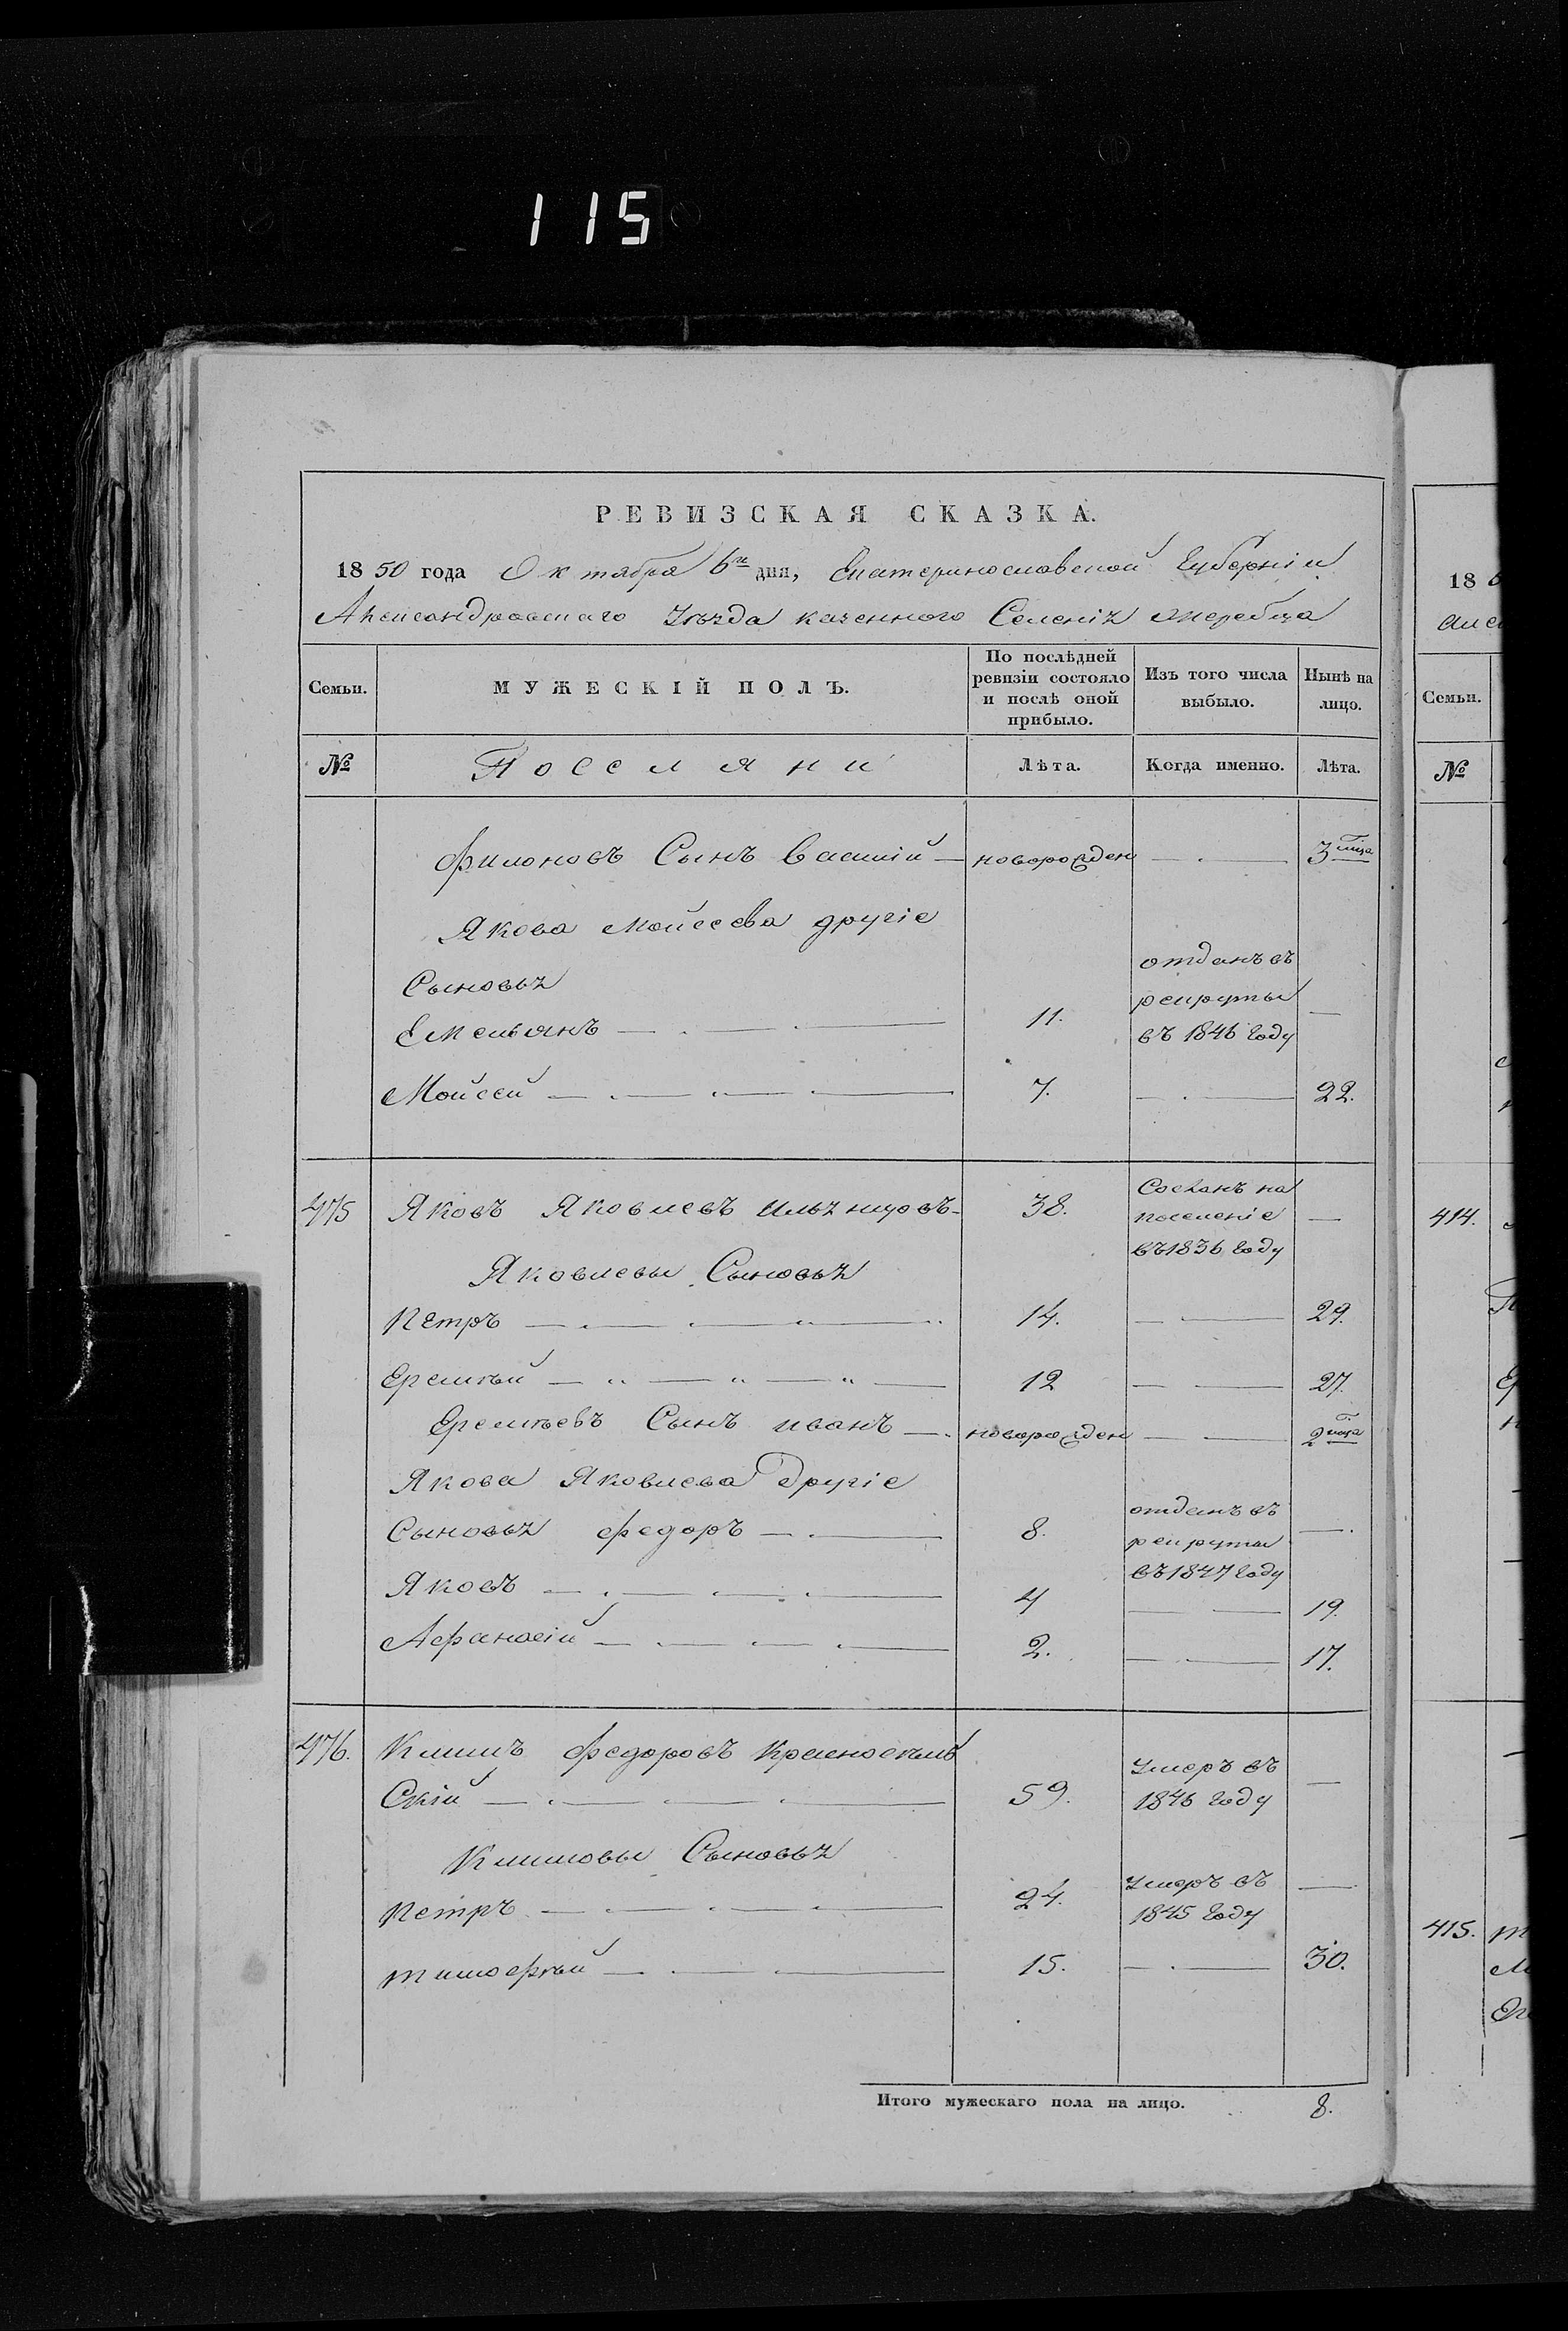 115
РЕВИЗСКАЯ СКАЗКА.
1850 года Октября 6го дня, Екатеринославской Губерніи
Александровскаго Уѣзда казенного Селенія Жеребца
Семьи. МУЖЕСКІЙ ПОЛЪ. По послѣдней ревизіи состояло и послѣ оной прибыло. Изъ того числа выбыло. Нынѣ на лицо.
№ Поселяни Лѣта. Когда именно. Лѣта.
Филоновъ Сынъ Василій — новорожден — 3 мца
Якова Мойсеева другіе
Сыновья
Емельянъ — 11. отданъ въ рекруты въ 1846 году —
Мойсей — 7. — 22.
475 Яковъ Яковлевъ 38. Сосланъ на поселеніе въ 1836 году —
Яковлевы Сыновья
Петръ — 14. — 29.
Еремѣй — 12 — 27.
Еремѣевъ Сынъ иванъ — новорожден — 2 мца
Якова Яковлева Другіе
Сыновья федоръ — 8. отданъ въ рекруты въ 1847 году —
Яковъ — 4 — 19.
Афанасій — 2. — 17.
476. Климъ федоровъ
Скій — 59. Умеръ въ 1846 году —
Климовы Сыновья
Петръ — 24. Умеръ въ 1845 году —
тимофѣй — 15. — 30.
Итого мужескаго пола на лицо. 8.
18
Семьи.
№
414.
415.